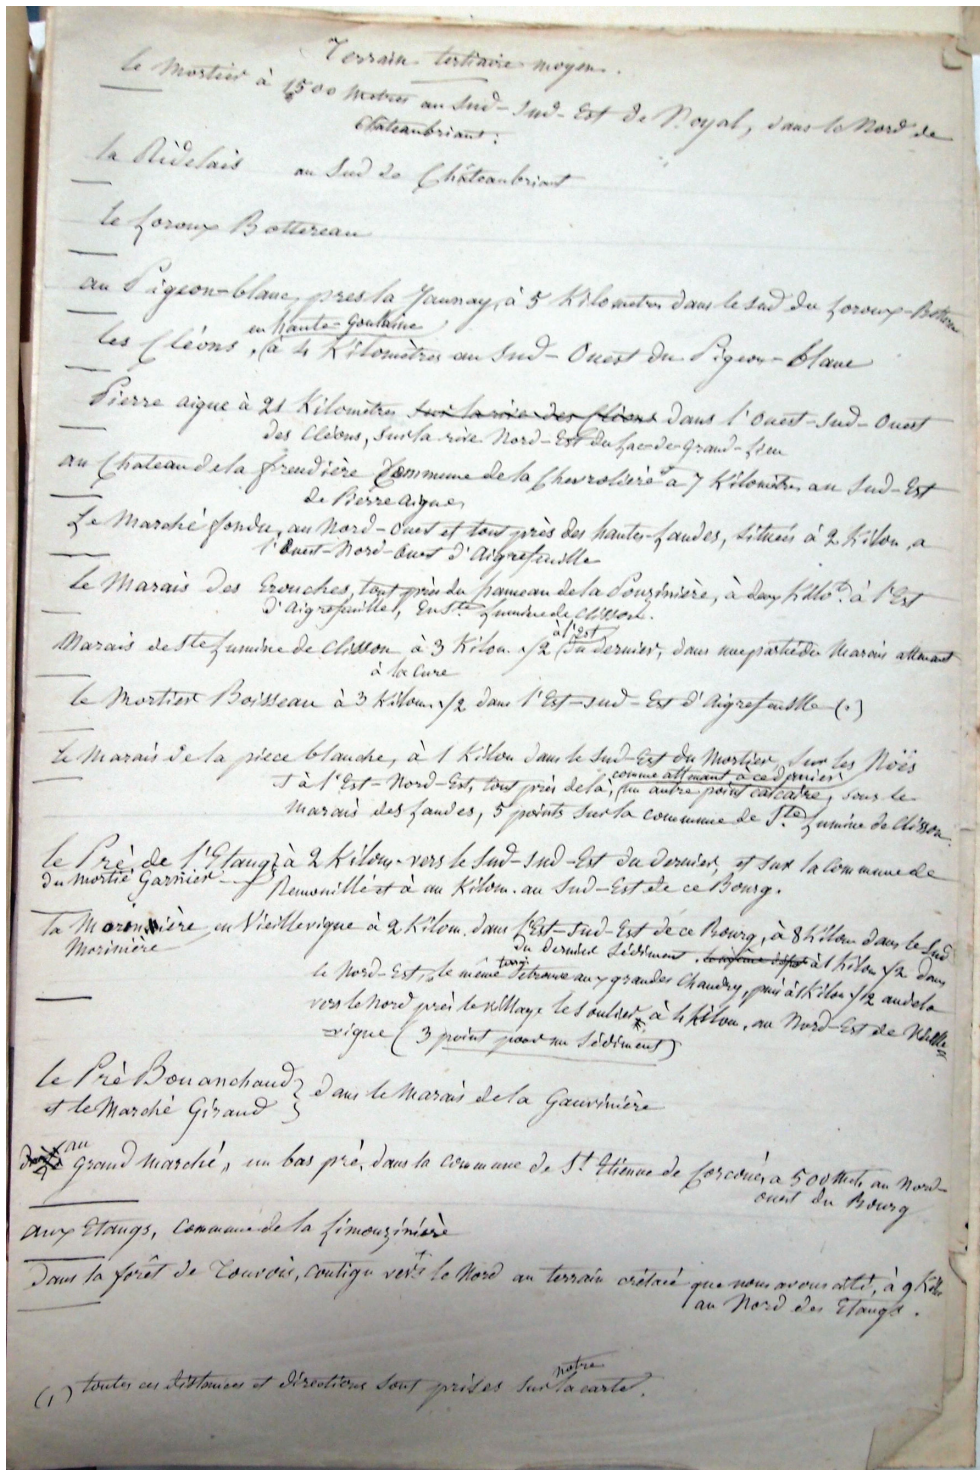 Terrain tertiaire moyen.
le Mortier à 1500 Metres au Sud-Sud-Est de Noyal, dans le Nord de
Chateaubriant.
la Ridelais au Sud de Châteaubriant
le Loroux Bottereau
au Pigeon-blanc, près la Jaunay, à 5 Kilometres dans le sud du Loroux-Bottereau
en haute-Goulaine
les Cléons, à 4 Kilomètres au Sud-Ouest du Pigeon-blanc
Pierre aigue à 21 Kilomètres sur la rive des Cléons dans l'Ouest-Sud-Ouest
des Cléons, sur la rive Nord-Est du Lac-de-Grand-Lieu
au Chateau de la freudière Commune de la Chevrolière à 7 Kilomètres au Sud-Est
de Pierre aigue,
Le Marché fondu, au Nord-Ouest et tout près des hautes-Landes, situées à 2 Kilom, a
l'Ouest-Nord-Ouest d'Aigrefeuille
le Marais des Erouches, tout près du hameau de la Pouzinière, à deux Kilo. à l'Est
d'aigrefeuille, en Ste Lumine de Clisson.
à l'Est
Marais de Ste Lumine de Clisson à 3 Kilom. 1/2 du dernier, dans une partie du Marais attenant
à la cure
le Mortier Boisseau à 3 Kilom. 1/2 dans l'Est-Sud-Est d'Aigrefeuille (1)
Le Marais de la pièce blanche, à 1 Kilom dans le Sud-Est du Mortier, sur les Nöës
comme attenant à ce dernier
à l'Est-Nord-Est, tout près de là, un autre point calcaire, sous le
Marais des Landes, 5 points sur la commune de Ste Lumine de Clisson.
le Pré de l'Etang à 2 Kilom. vers le Sud-Sud-Est du dernier, et sur la Commune de
du Mortié Garnier Remouillé et à un Kilom. au Sud-Est de ce Bourg.
la Moronnière en Vieillevigne à 2 Kilom. dans l'Est-Sud-Est de ce Bourg, à 8 Kilom dans le Sud
Morinière du dernier Sédiment, à 1 Kilom 1/2 dans
le Nord-Est, le même terrain se trouve aux grandes Chaudry, puis à 1 Kilom 1/2 au dela
vers le Nord près le village le Soulier, à 4 Kilom. au Nord-Est de Vieille
vigne (3 point pour un Sédiment)
le Pré Bouanchaud
et le Marché Giraud } dans le Marais de la Gauvinière
au
grand Marché, un bas pré, dans la commune de St Etienne de Corcoué, à 500 Met. au Nord-
ouest du Bourg
aux Etangs, Commune de la Limouzinière
Dans la forêt de Touvois, contigu vers le Nord au terrain crétacé que nous avons cité, à 9 Kilo
au Nord des Etangs.
notre
(1) toutes ces distances et directions sont prises sur la carte.